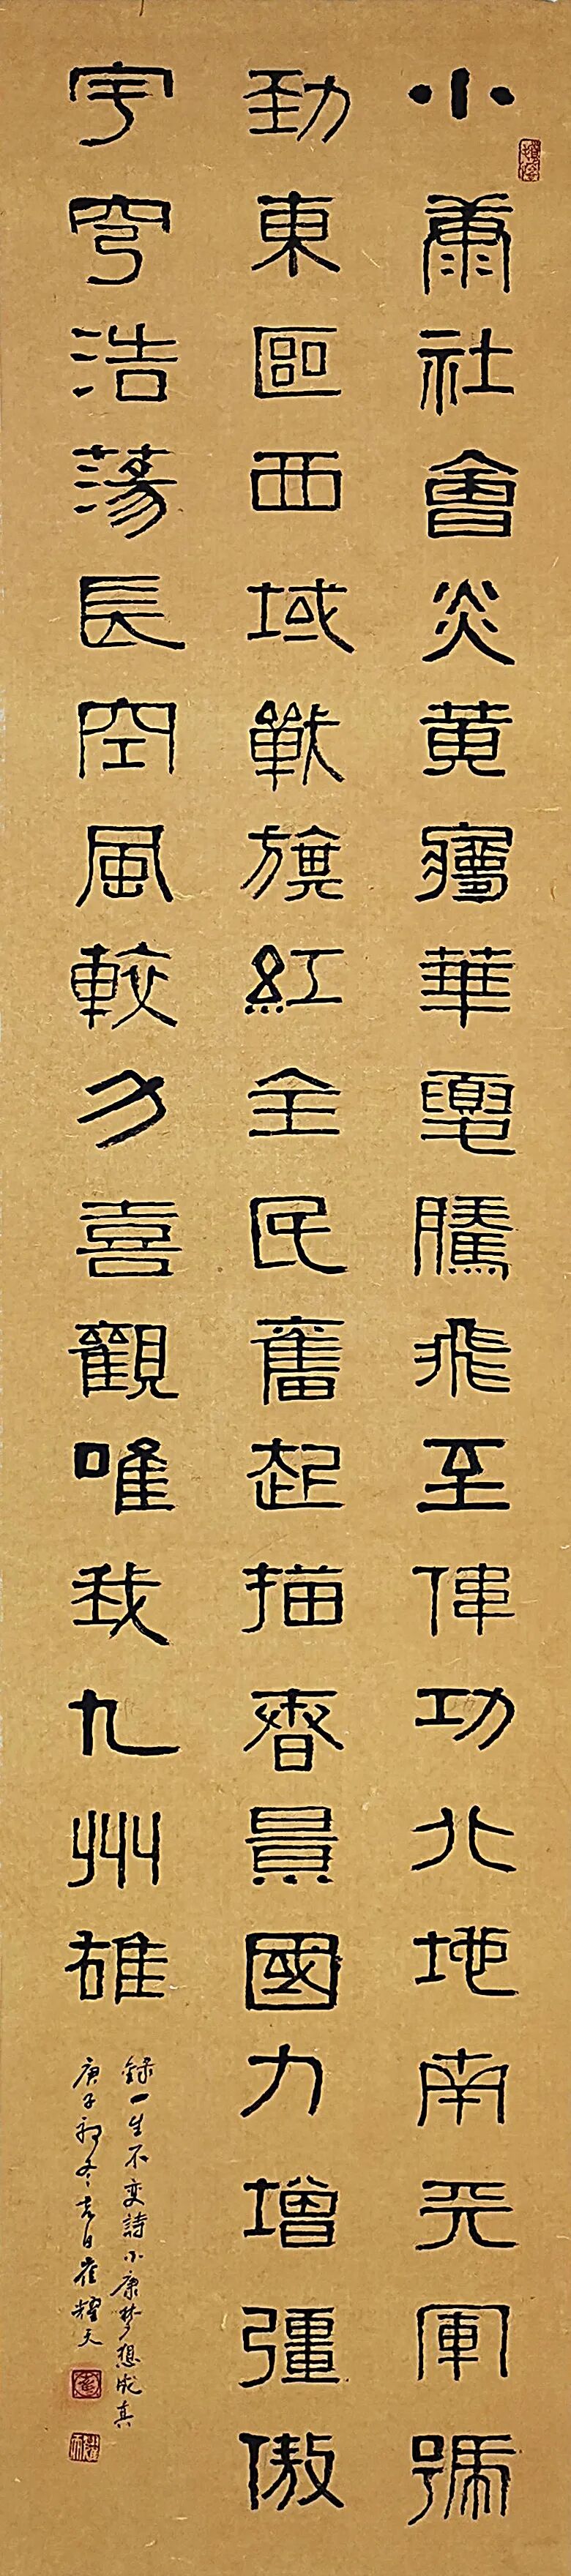 小康社會炎黃夢華夏騰飛至偉功北地南天軍號
勁東區西域戰旗紅全民奮起描春景國力增彊傲
宇穹浩蕩長空風較力喜觀唯我九州雄
錄一生不变詩小康梦想成真
庚子初冬吉日崔耀天